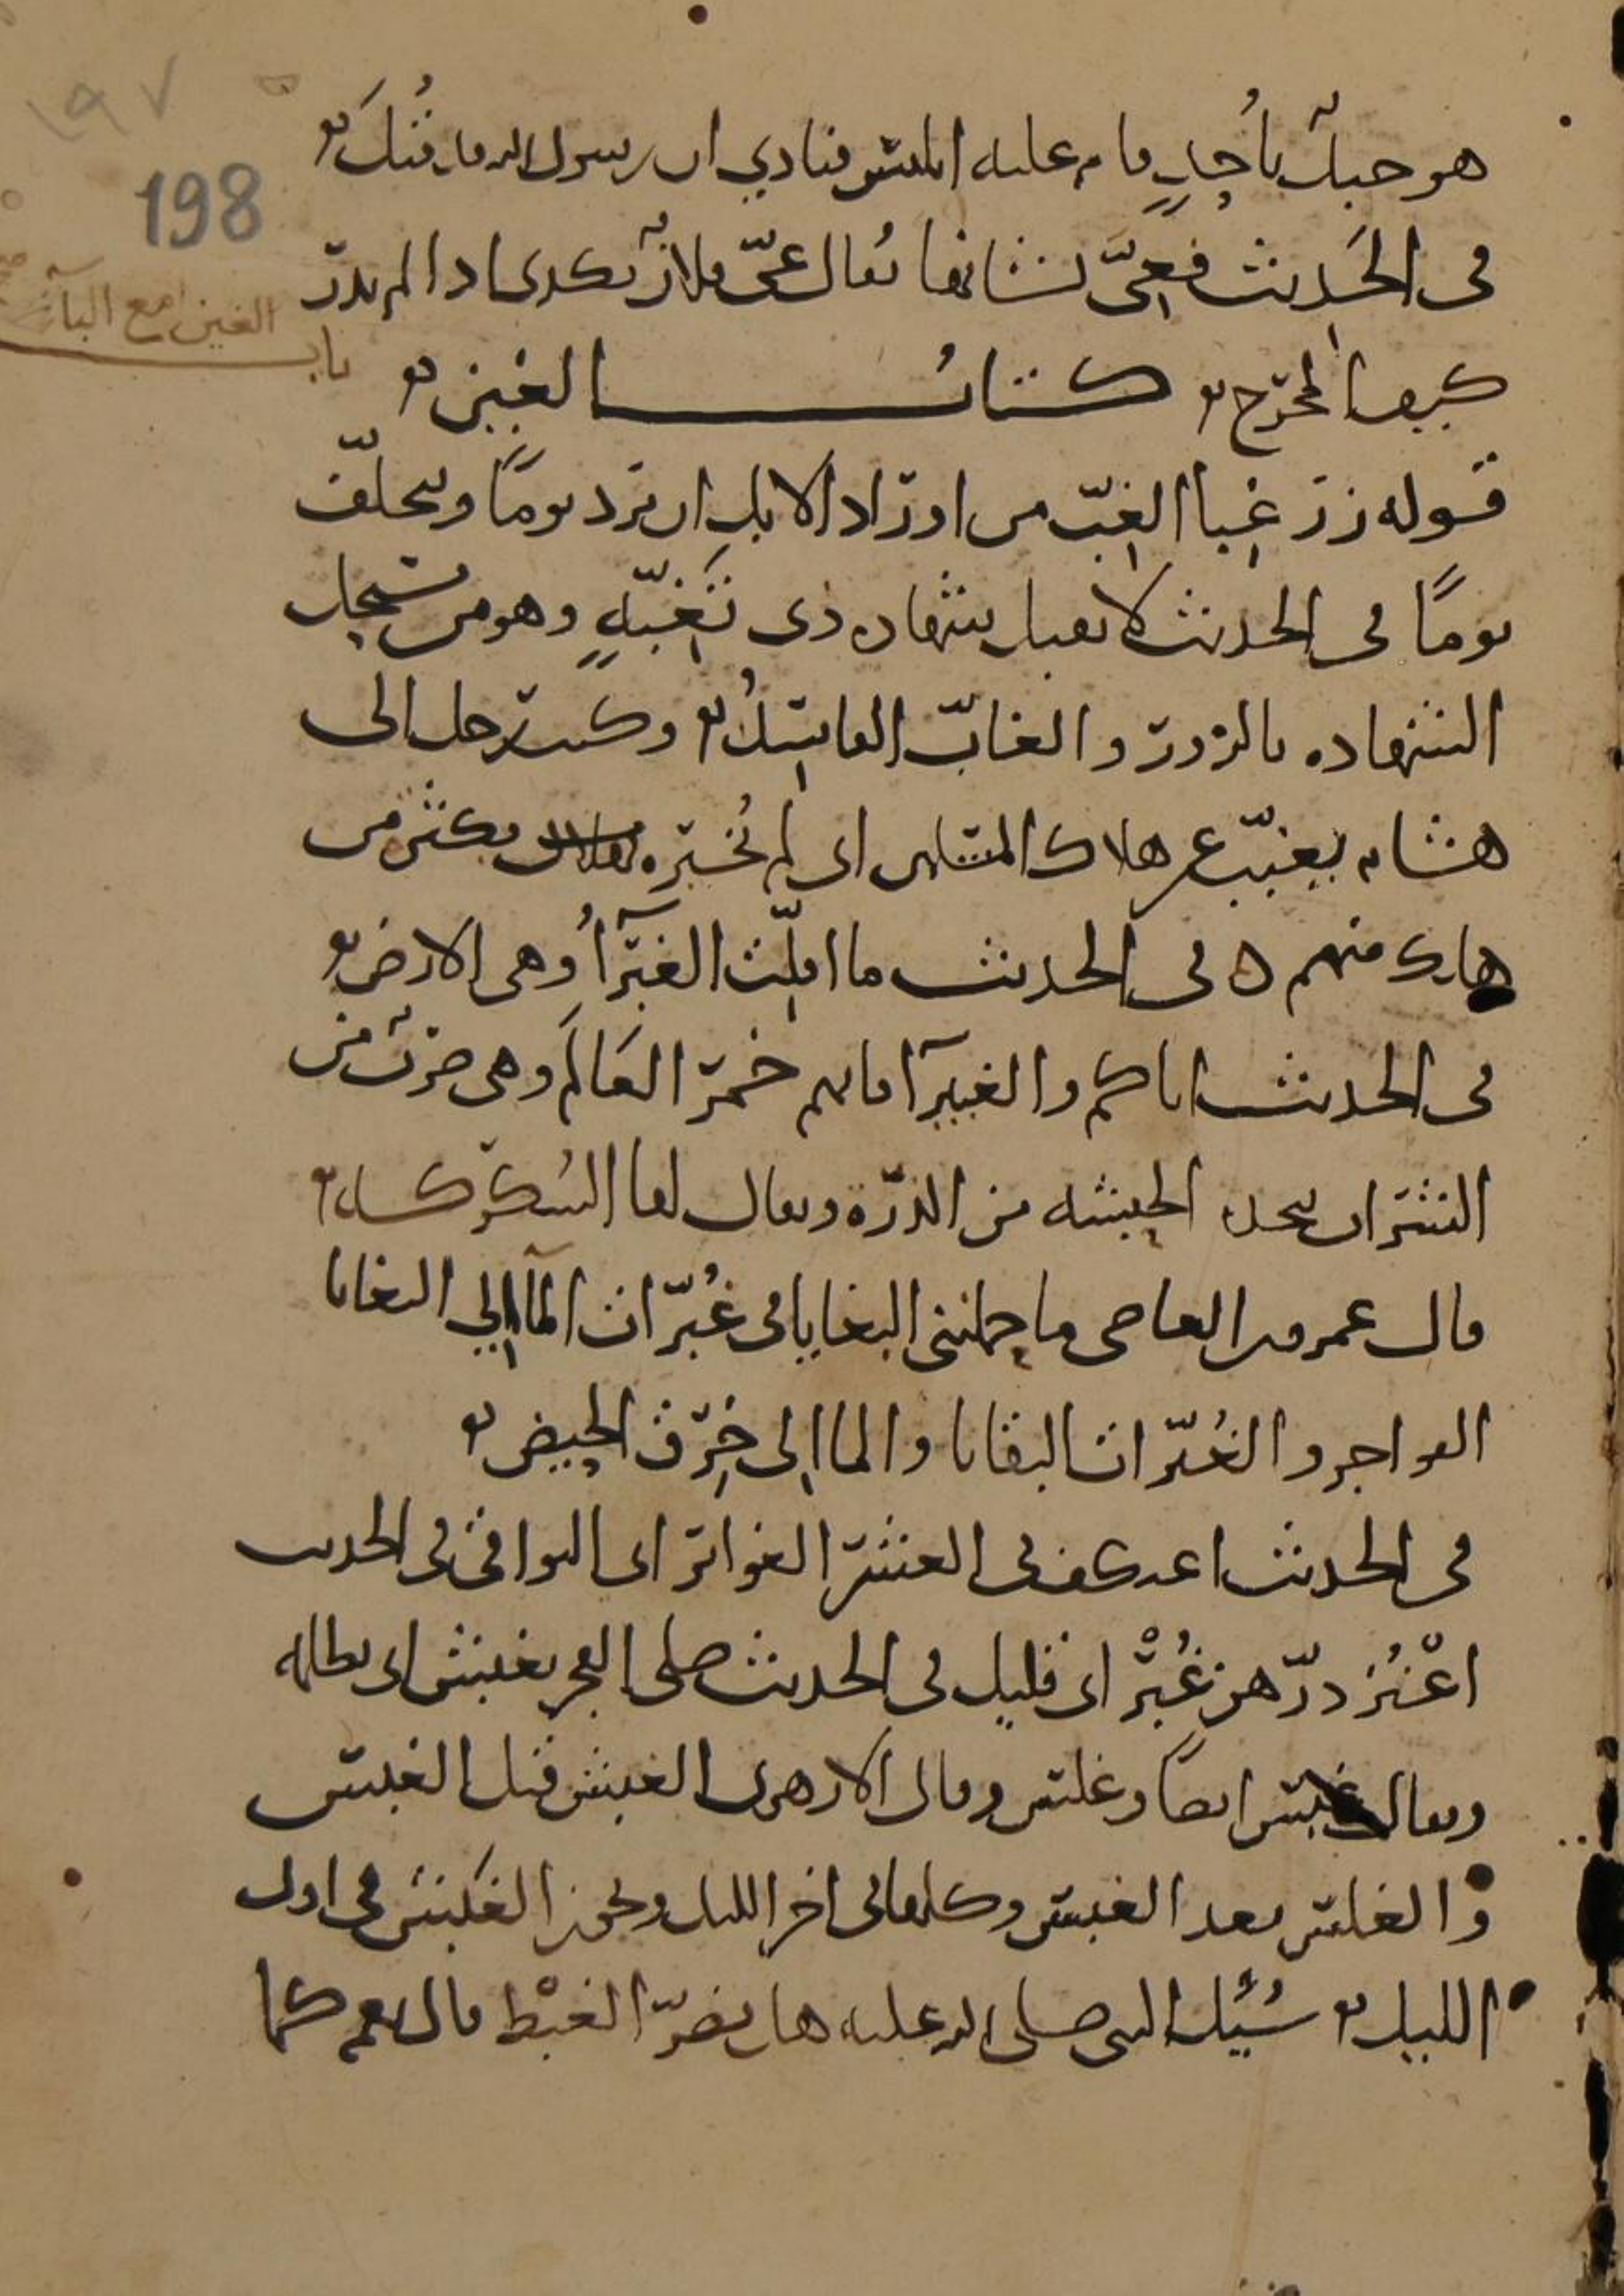 ١٩٧
198
هو جبل بأُحدٍ قام عليه ابليس فنادي ان رسول الله قد قُتلَ
فى الحَديث فعىَّ بشانها يُقال عىّ فلانٌ بكذى اذا لم يدرِ
كيف المخرج كتابُ الغين
باب الغين مع البآء
قوله زر غِبا الغِبّ من اوراد الابل ان ترد يومًا وتخلّف
يومًا فى الحديث لا تقبل شهاده ذى تَغِبّةٍ وهو من يستحل
الشهاده بالزور والغابّ الفاسِدُ وكتب رجل الى
هشام يغبّب عن هلاك المسلمين اى لم يُخبره بكثره من
هلك منهم فى الحديث ما اقلّت الغَبرآءُ وهى الارض
فى الحديث اياكم والغبيرآ فانها خمر العَالَم وهى ضربٌ من
الشراب يتخذه الحبشه من الذرة ويقال لها السُكركه
قال عمرو بن العاص ما حملتنى البغايا فى غُبّرات المآلي البغايا
الفواجر والغُبّرات البقايا والمآلى خِرَق الحيض
فى الحديث اعتكف فى العشر الغوابر اى البواقى فى الحديث
اعْنُز درّهن غُبْرٌ اى قليل فى الحديث صلى الفجر بغبش اى بظلمه
ويقال غبس ايضًا وغلس وقال الازهرى الغبش قبل الغبس
والغلس بعد الغبس وكلها فى اخر الليل ويجوز الغَبش فى اول
الليل سُئل النبى صلى الله عليه هل يضرّ الغبْط قال نعم كما